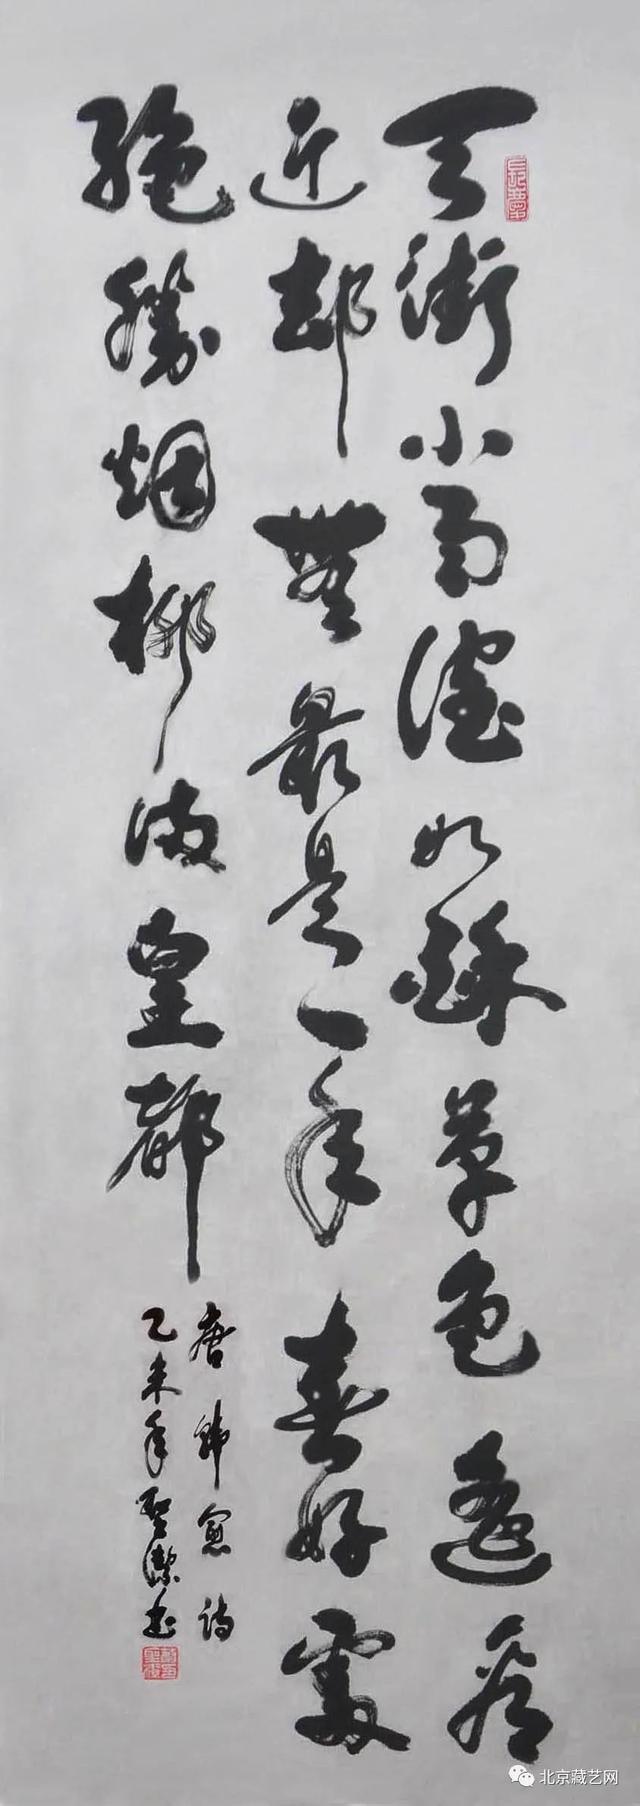 天街小雨潤如酥草色遙看
近却無最是一年春好處
絶勝烟柳滿皇都
唐韓愈詩
乙未年聖潔書
北京藏艺网